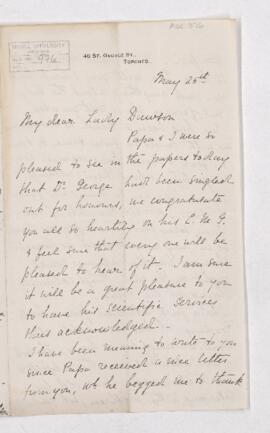 46 ST. GEORGE ST.,
TORONTO.
May 25th
My dear Lady Dawson
Papa & I were so
pleased to see in the papers to day
that Dr. George had been singled
out for honours, we congratulate
you all so heartily on his C. M. G.
& feel sure that every one will be
pleased to hear of it. I am sure
it will be a great pleasure to you
to have his scientific services
thus acknowledged.
I have been meaning to write to you
since Papa received a nice letter
from you, wh he begged me to thank